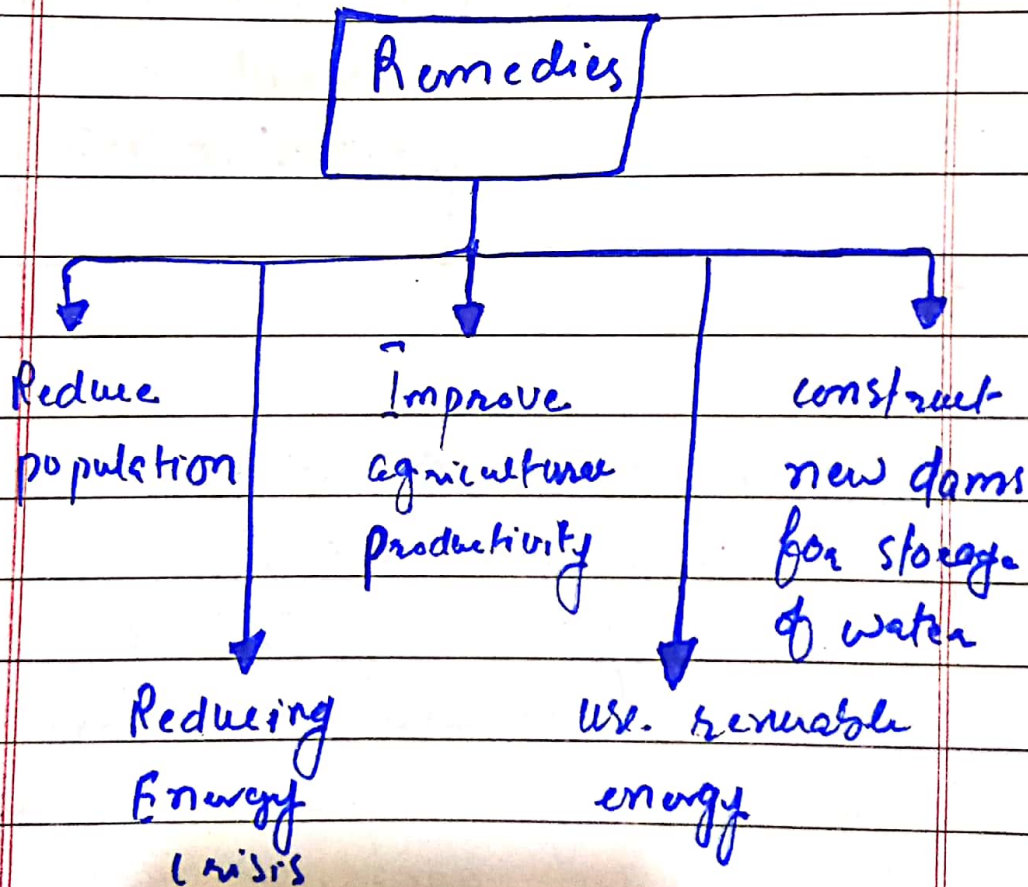 Remedies
Reduce
population
Improve
agricultural
productivity
construct
new dams
for storage
of water
Reducing
Energy
Crisis
use. renewable
energy